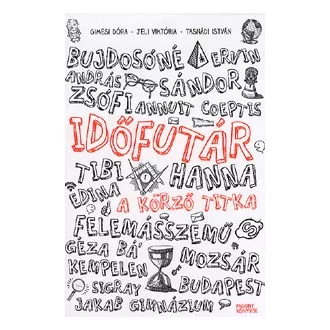 GIMESI DÓRA • JELI VIKTÓRIA • TASNÁDI ISTVÁN
BUJDOSÓNÉ ERVIN
ANDRÁS SÁNDOR
ZSÓFI ANNUIT COEPTIS
IDŐFUTÁR
TIBI HANNA
EDINA
A KÖRZŐ TITKA
FELEMÁSSZEMŰ
GÉZA BÁ' MOZSÁR
KEMPELEN
SIGRAY BUDAPEST
JAKAB GIMNÁZIUM
PAGONY
KÖNYVEK